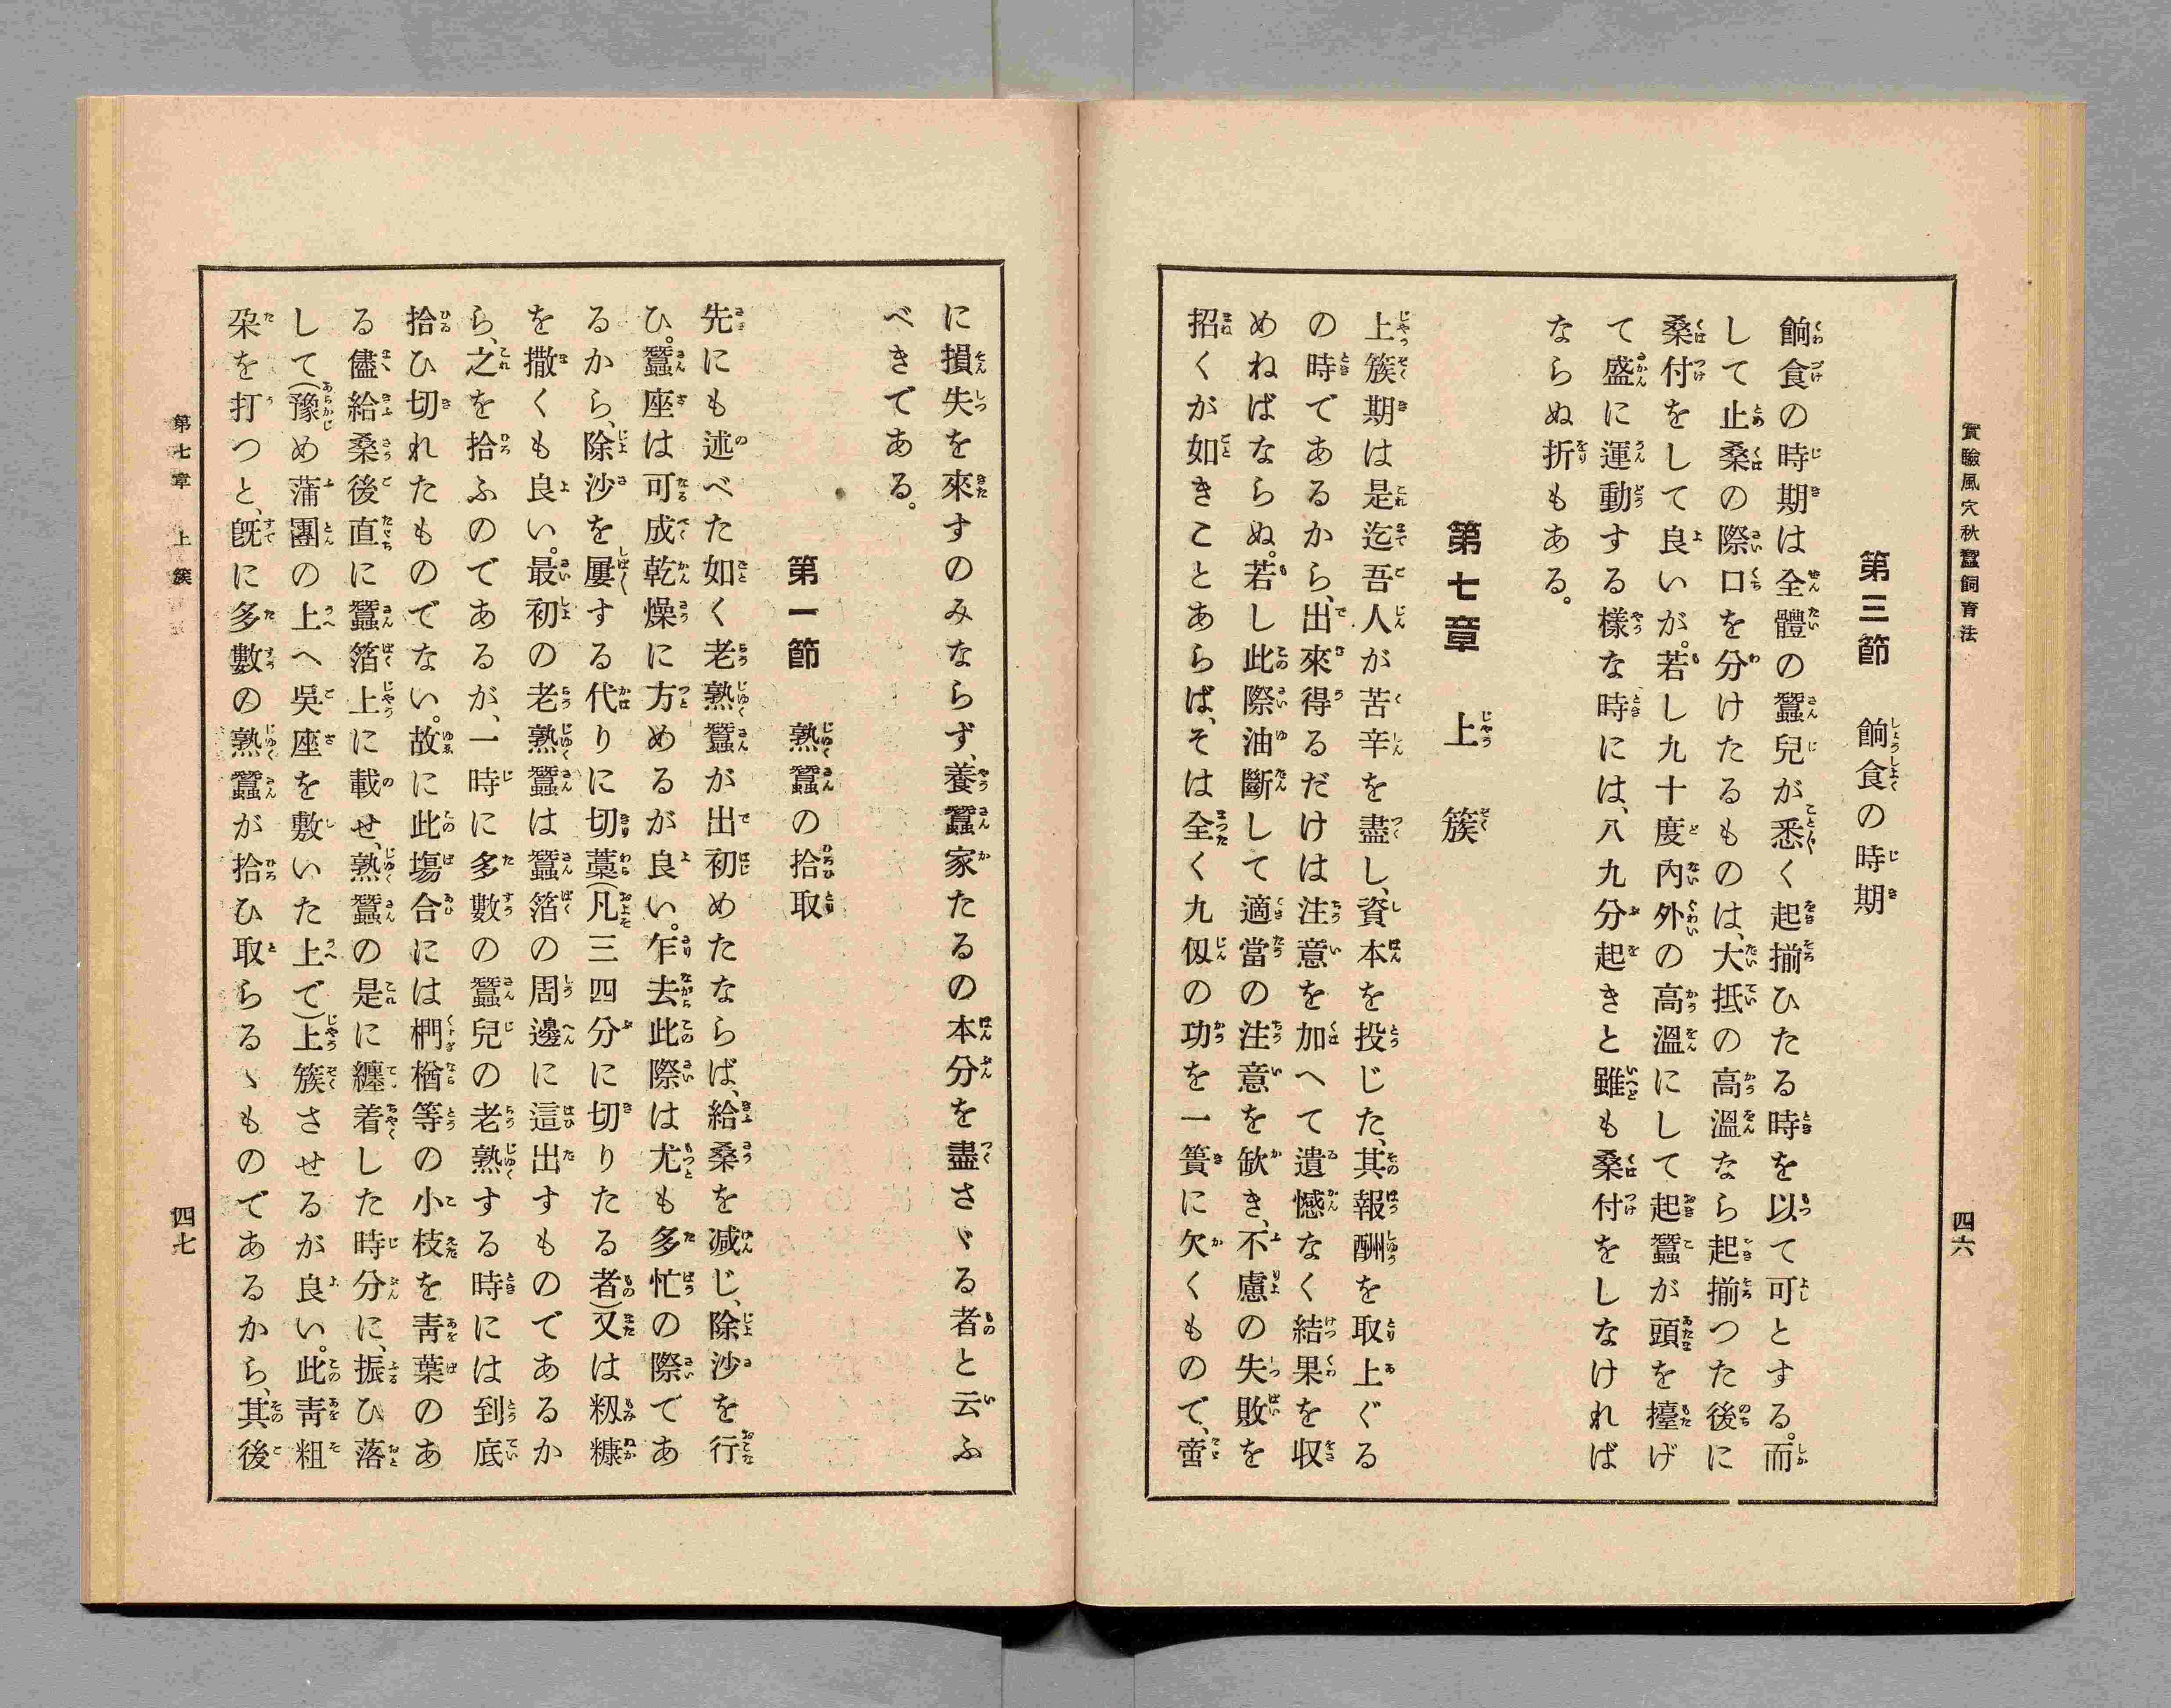 實驗風穴秋蠶飼育法
四六
第三節　餉食の時期
餉食の時期は全體の蠶兒が悉く起揃ひたる時を以て可とする。而
して止桑の際口を分けたるものは、大抵の高溫なら起揃つた後に
桑付をして良いが。若し九十度內外の高溫にして起蠶が頭を擡げ
て盛に運動する樣な時には、八九分起きと雖も桑付をしなければ
ならぬ折もある。
第七章　上　簇
上簇期は是迄吾人が苦辛を盡し、資本を投じた、其報酬を取上ぐる
の時であるから、出來得るだけは注意を加へて遺憾なく結果を収
めねばならぬ。若し此際油斷して適當の注意を缺き、不慮の失敗を
招くが如きことあらば、そは全く九仭の功を一簣に欠くもので、啻
に損失を來すのみならず、養蠶家たるの本分を盡さゞる者と云ふ
べきである。
第一節　熟蠶の拾取
先にも述べた如く老熟蠶が出初めたならば、給桑を減じ、除沙を行
ひ。蠶座は可成乾燥に方めるが良い。乍去此際は尤も多忙の際であ
るから、除沙を屢する代りに切藁(凡三四分に切りたる者)又は籾糠
を撒くも良い。最初の老熟蠶は蠶箔の周邊に這出すものであるか
ら、之を拾ふのであるが、一時に多數の蠶兒の老熟する時には到底
拾ひ切れたものでない。故に此塲合には椚楢等の小枝を靑葉のあ
る儘給桑後直に蠶箔上に載せ、熟蠶の是に纏着した時分に、振ひ落
して(豫め蒲團の上へ吳座を敷いた上で)上簇させるが良い。此靑粗
朶を打つと、旣に多數の熟蠶が拾ひ取らるゝものであるから、其後
第七章　上簇
四七